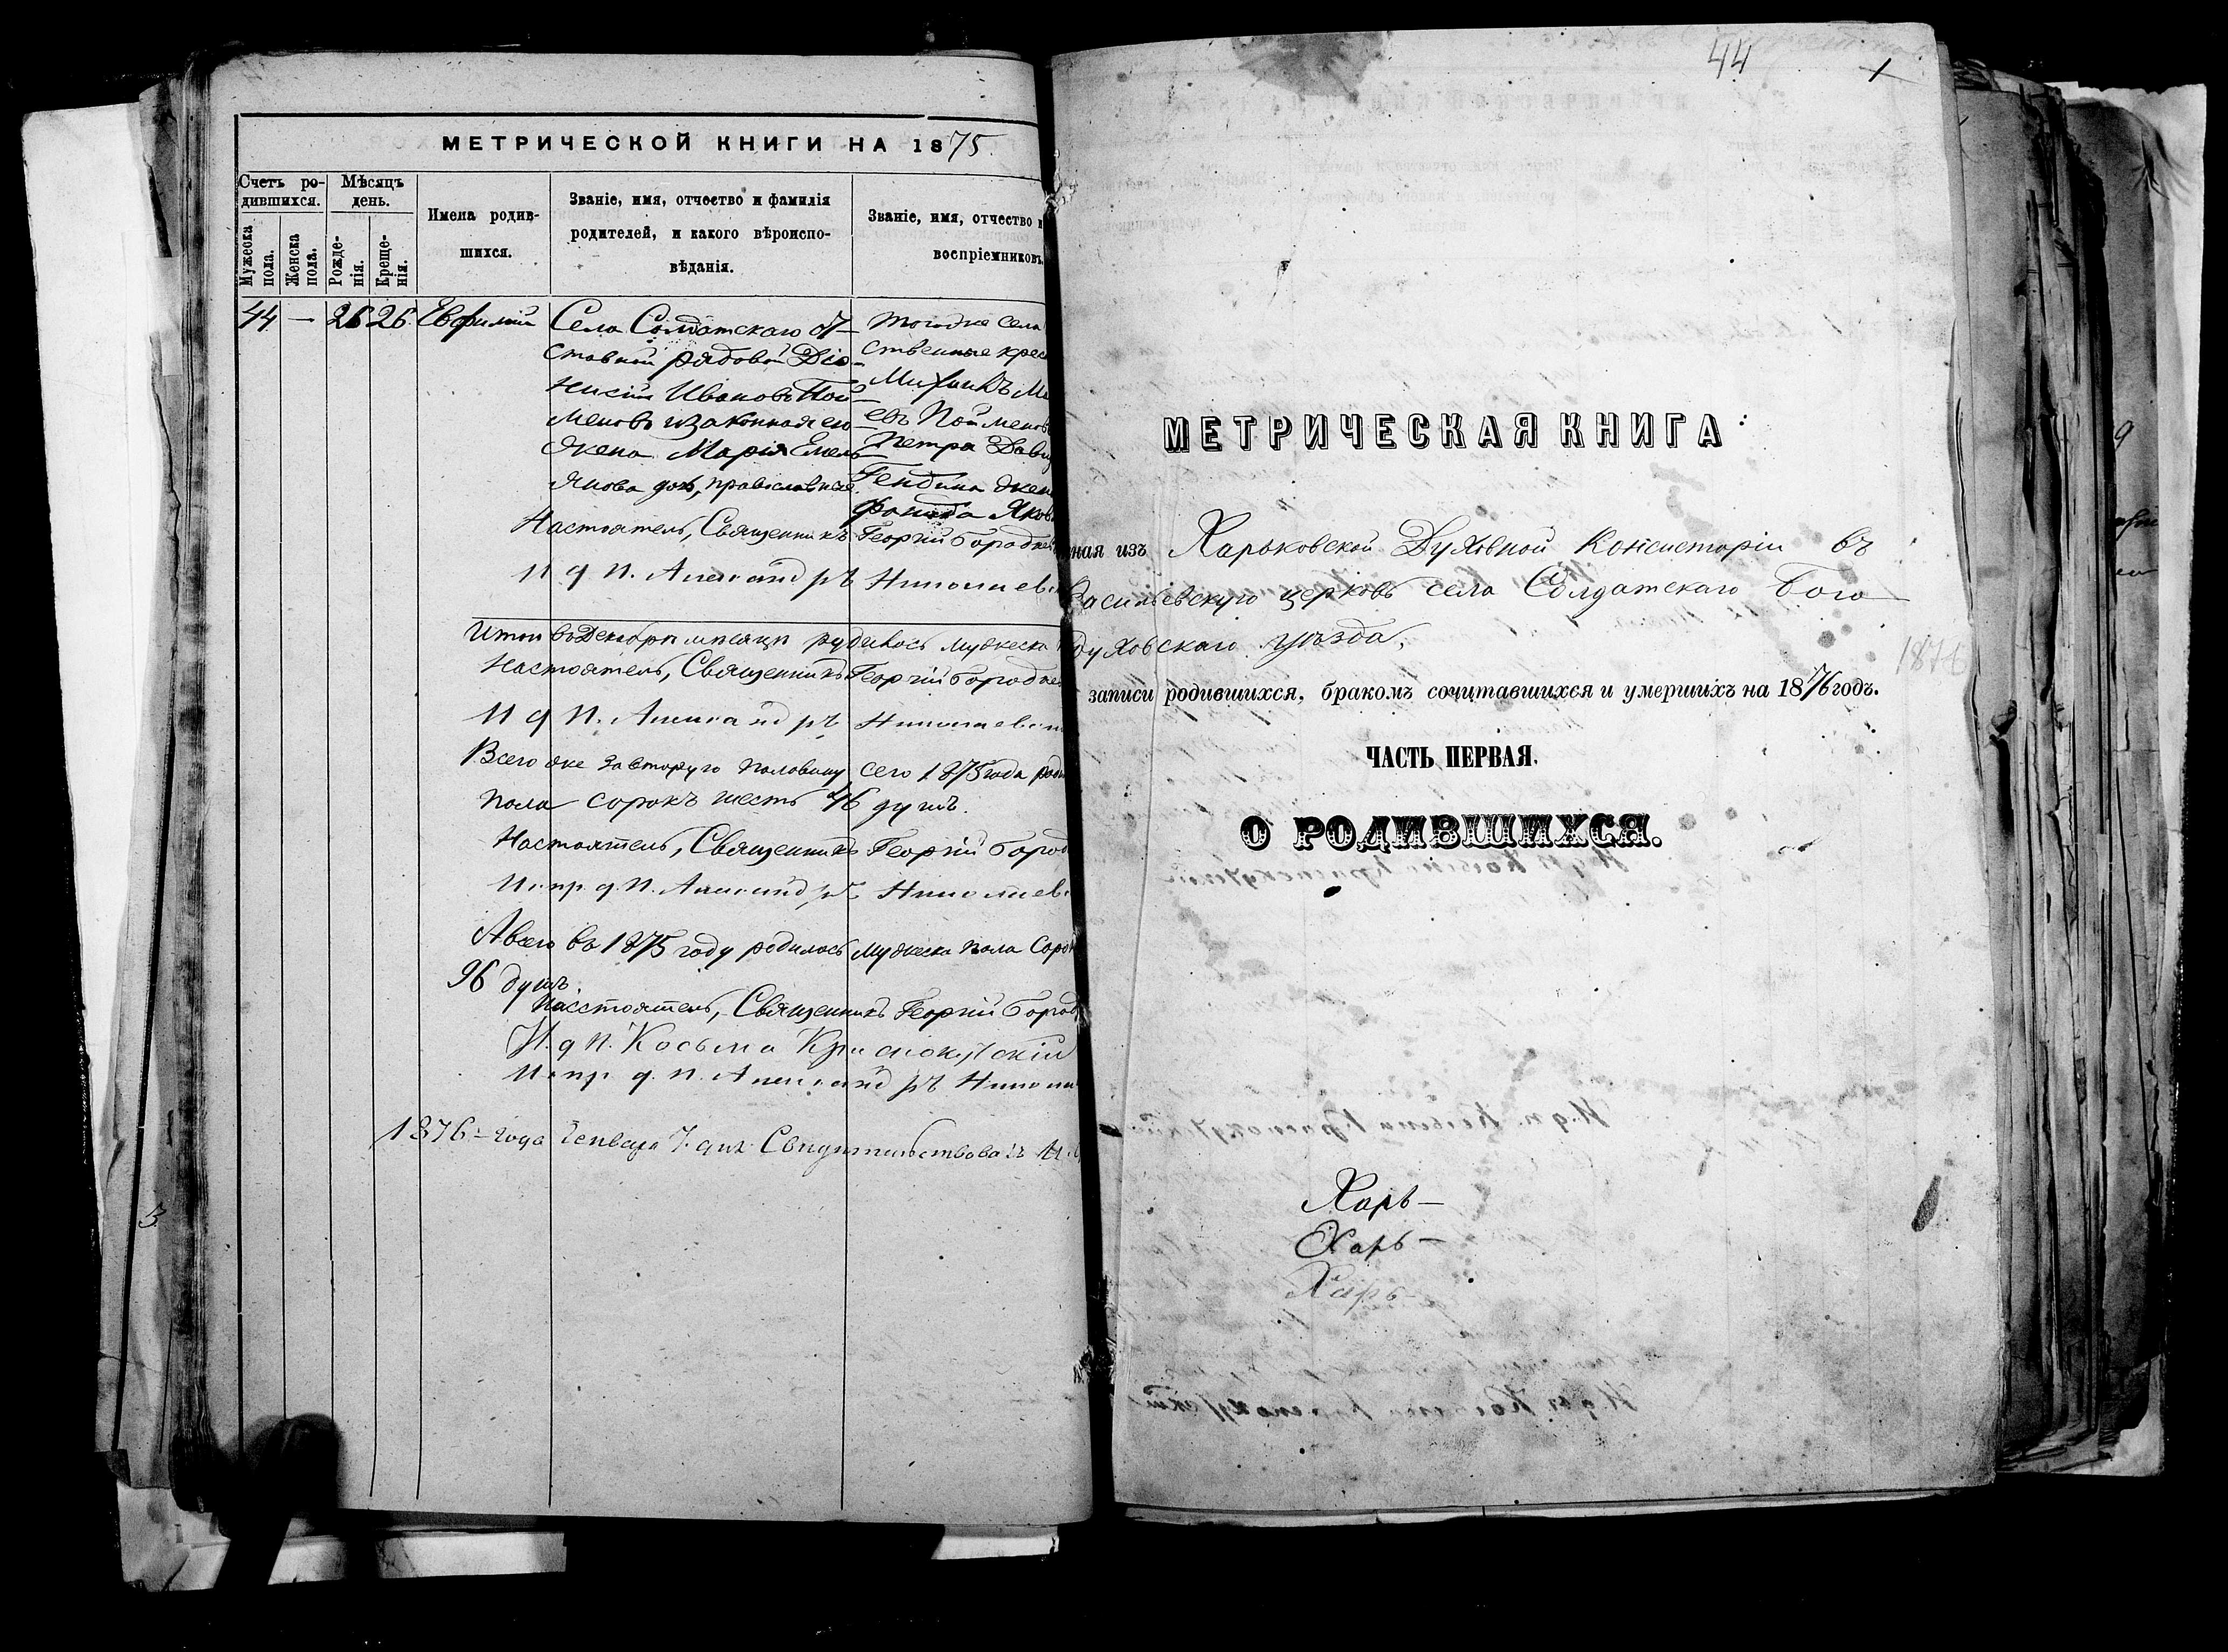 МЕТРИЧЕСКОЙ КНИГИ НА 1875.
Счетъ ро-
дившихся.
Мѣсяцъ
день.
Мужеска
пола.
Женска
пола.
Рожде-
нія.
Креще-
нія.
Имена родив-
шихся.
Званіе, имя, отчество и фамилія
родителей, и какого вѣроиспо-
вѣданія.
Званіе, имя, отчество и
воспріемниковъ.
44 — 26 26 Евфимій
Села Солдатскаго от-
ставной рядовой Діо-
нисій Ивановъ Пой-
меновъ и законная его
жена Марія Емель-
янова дочь, православные
тогоже села
ственные крес
Ми
евъ Пойменов
Петра Дави
Гендина жен
Яков
Настоятель, Священникъ Георгій Город
И д п. Александръ Николаевс
Итого въ Декабрѣ мѣсяцѣ родилось мужеска
Настоятель, Священникъ Георгій Город
И д п. Александръ Николаевс
Всего же за вторую половину сего 1875 года роди
пола сорокъ шесть 46 душъ.
Настоятель, Священникъ Георгій Город
Испр. д. п. Александръ Николаев
А всего въ 1875 году родилось мужеска пола Сорок
96 душъ.
Насстоятель, Священникъ Георгій Город
И. д п. Косьма Краснокутскій
Испр. д. п. Александръ Никола
1876-года Генваря 7 дня Свидѣтельствовалъ
3
44
1
МЕТРИЧЕСКАЯ КНИГА
ная изъ Харьковской Духовной Консисторіи въ
Васильевскую церковь села Солдатскаго Бого-
духовскаго уѣзда,
1876
записи родившихся, бракомъ сочитавшихся и умершихъ на 1876 годъ.
ЧАСТЬ ПЕРВАЯ.
О РОДИВШИХСЯ.
Харь-
Харь-
Харь-